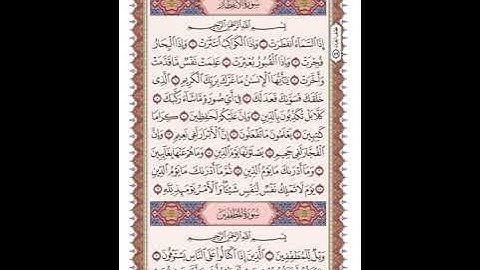 سُورَةُ الانفِطَارِ
بِسْمِ اللَّهِ الرَّحْمَٰنِ الرَّحِيمِ
إِذَا السَّمَاءُ انفَطَرَتْ ۝ وَإِذَا الْكَوَاكِبُ انتَثَرَتْ ۝ وَإِذَا الْبِحَارُ
فُجِّرَتْ ۝ وَإِذَا الْقُبُورُ بُعْثِرَتْ ۝ عَلِمَتْ نَفْسٌ مَّا قَدَّمَتْ
وَأَخَّرَتْ ۝ يَا أَيُّهَا الْإِنسَانُ مَا غَرَّكَ بِرَبِّكَ الْكَرِيمِ ۝ الَّذِي
خَلَقَكَ فَسَوَّاكَ فَعَدَلَكَ ۝ فِي أَيِّ صُورَةٍ مَّا شَاءَ رَكَّبَكَ ۝
كَلَّا بَلْ تُكَذِّبُونَ بِالدِّينِ ۝ وَإِنَّ عَلَيْكُمْ لَحَافِظِينَ ۝ كِرَامًا
كَاتِبِينَ ۝ يَعْلَمُونَ مَا تَفْعَلُونَ ۝ إِنَّ الْأَبْرَارَ لَفِي نَعِيمٍ ۝ وَإِنَّ
الْفُجَّارَ لَفِي جَحِيمٍ ۝ يَصْلَوْنَهَا يَوْمَ الدِّينِ ۝ وَمَا هُمْ عَنْهَا بِغَائِبِينَ
۝ وَمَا أَدْرَاكَ مَا يَوْمُ الدِّينِ ۝ ثُمَّ مَا أَدْرَاكَ مَا يَوْمُ الدِّينِ
۝ يَوْمَ لَا تَمْلِكُ نَفْسٌ لِّنَفْسٍ شَيْئًا وَالْأَمْرُ يَوْمَئِذٍ لِّلَّهِ
سُورَةُ المُطَفِّفِينَ
بِسْمِ اللَّهِ الرَّحْمَٰنِ الرَّحِيمِ
وَيْلٌ لِّلْمُطَفِّفِينَ ۝ الَّذِينَ إِذَا اكْتَالُوا عَلَى النَّاسِ يَسْتَوْفُونَ